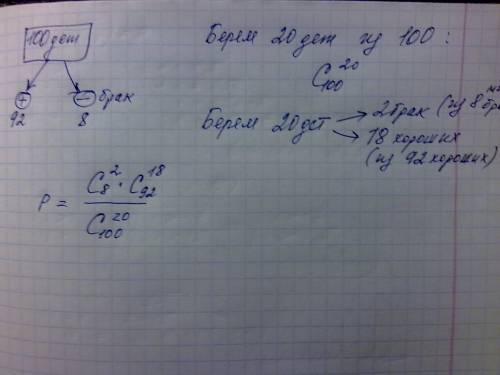 100 дет
+
− брак
92
8
Берем 20 дет из 100 :
C₁₀₀²⁰
Берем 20 дет → 2 брак (из 8
→ 18 хороших
(из 92 хороших)
P = C₈² · C₉₂¹⁸ / C₁₀₀²⁰